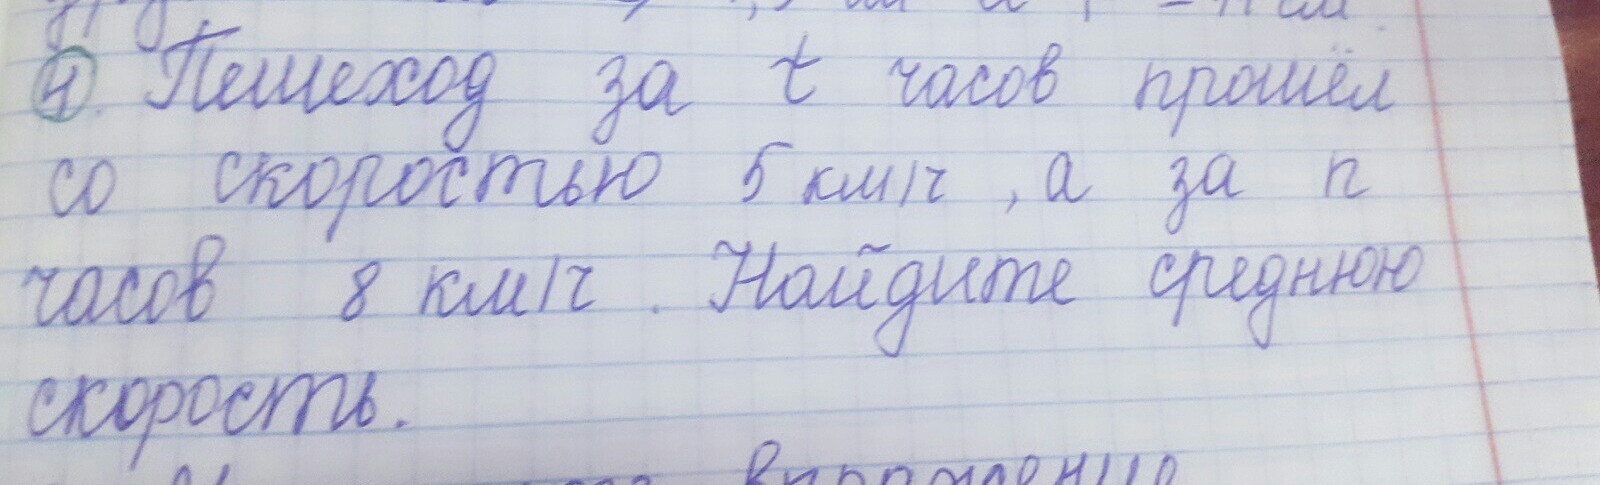 4. Пешеход за t часов прошёл
со скоростью 5 км/ч, а за n
часов 8 км/ч. Найдите среднюю
скорость.
выражение